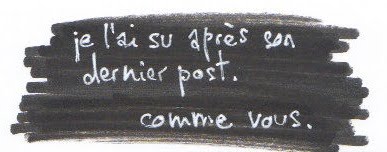 je l'ai su après son
dernier post.
comme vous.